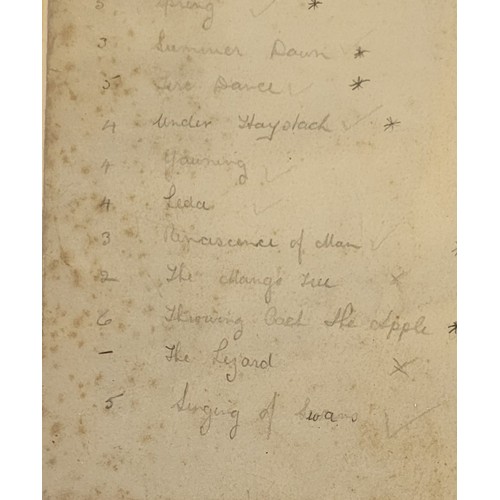 5 Spring ✓ *
3 Summer Dawn ✓ *
5 Fire Dance ✓ *
4 Under Haystack ✓ *
4 Yawning ✓
4 Leda ✓
3 Renascence of Man ✓ *
2 The Mango Tree ×
6 Throwing Back the Apple *
- The Lizard ×
5 Singing of Swans ✓